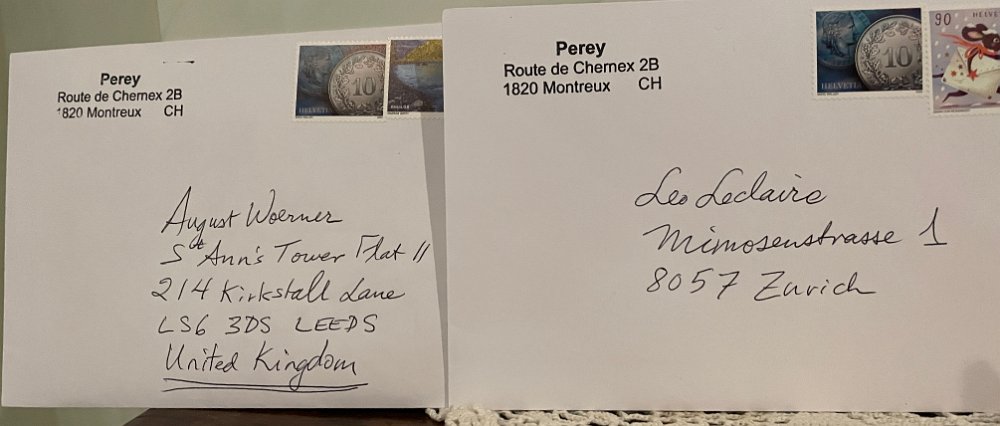 Perey
Route de Chernex 2B
1820 Montreux CH
10
HELVETIA
August Woerner
St Ann's Tower Flat 11
214 Kirkstall Lane
LS6 3DS LEEDS
United Kingdom
Perey
Route de Chernex 2B
1820 Montreux CH
10
HELVETIA
90 HELVE
Leo Leclaire
Mimosenstrasse 1
8057 Zurich